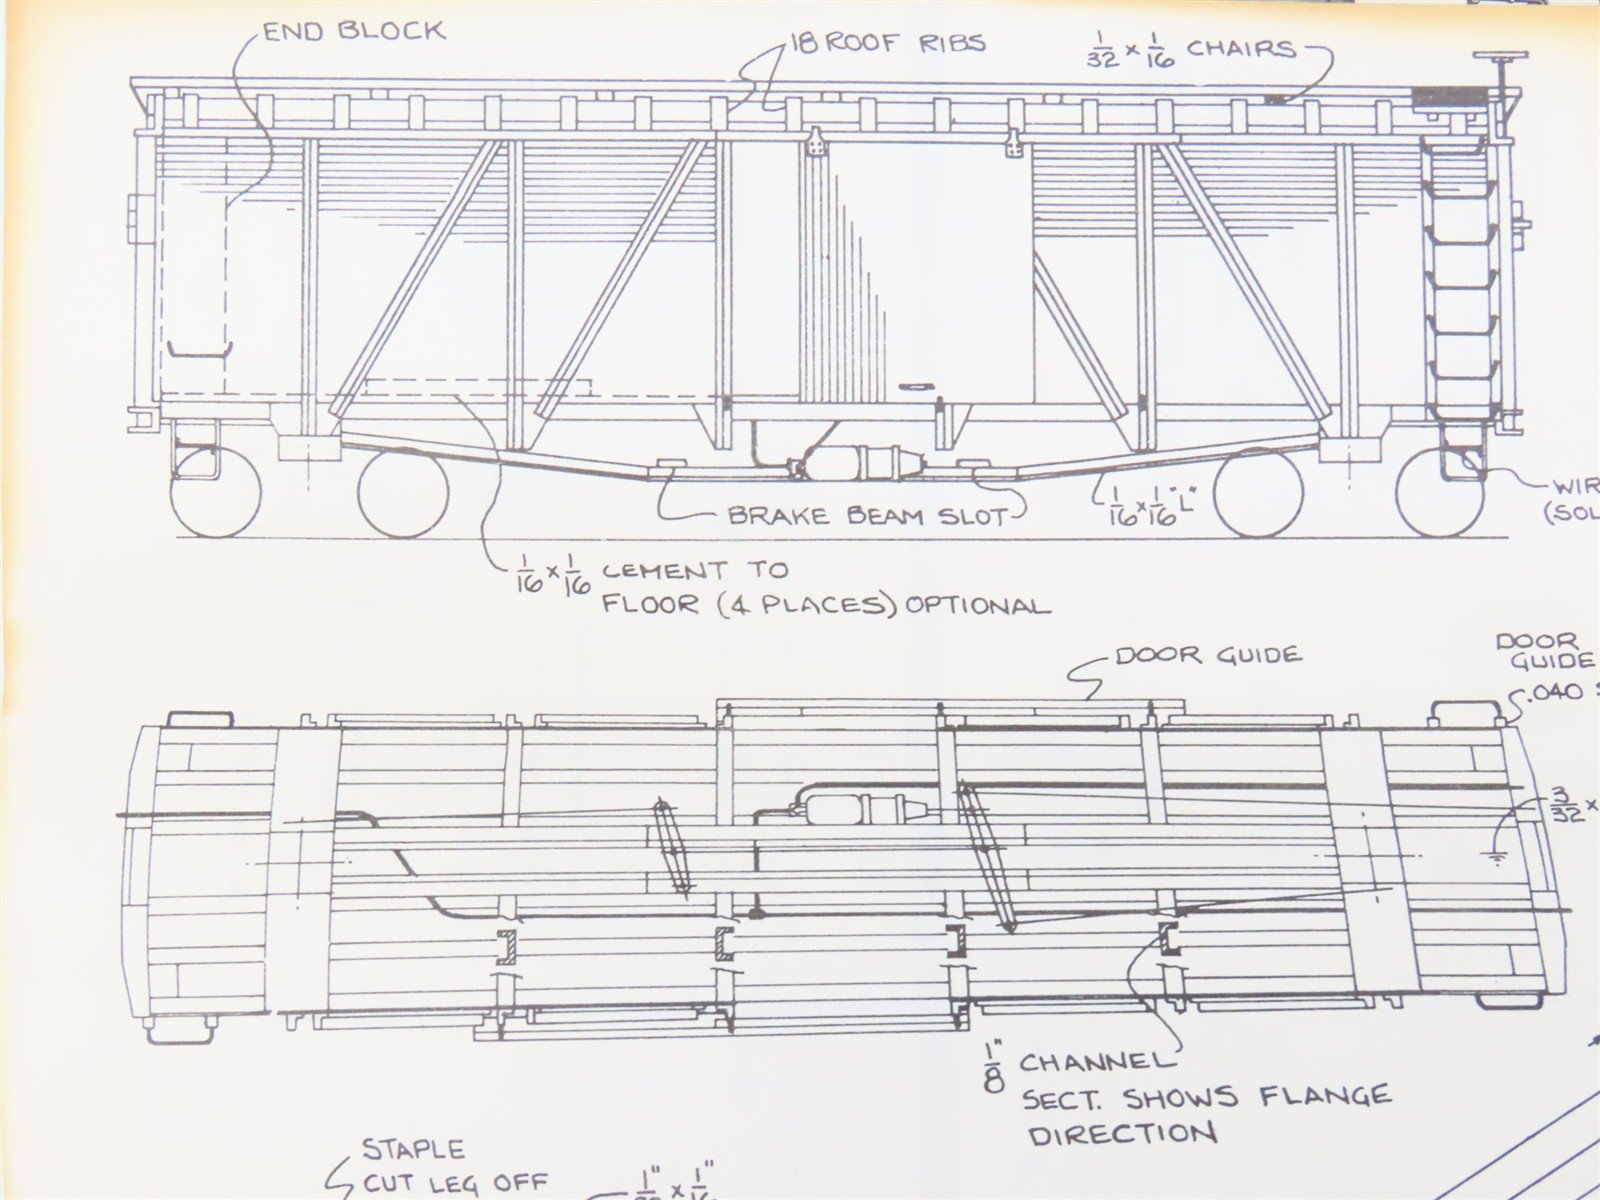 END BLOCK
18 ROOF RIBS
1/32 x 1/16 CHAIRS
BRAKE BEAM SLOT
1/16 x 1/16 "L"
WIR
(SOL
1/16 x 1/16 CEMENT TO
FLOOR (4 PLACES) OPTIONAL
DOOR GUIDE
DOOR
GUIDE
.040
3/32 x
1/8" CHANNEL
SECT. SHOWS FLANGE
DIRECTION
STAPLE
CUT LEG OFF